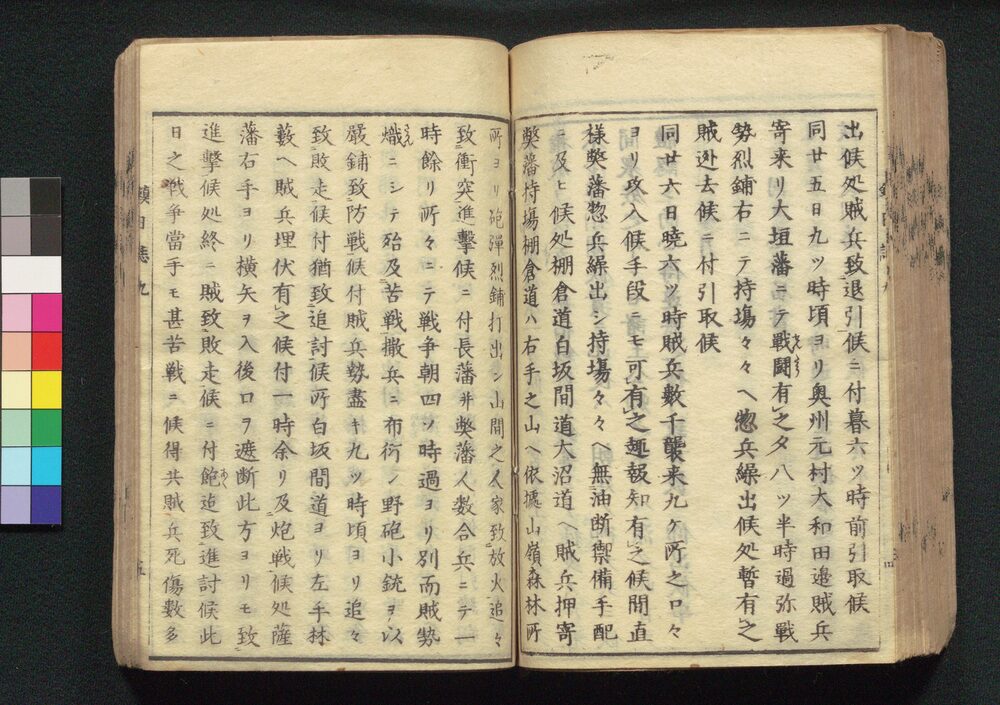 出候処賊兵致退引候ニ付暮六ツ時前引取候
同廿五日九ツ時頃ヨリ奥州元村大和田邉賊兵
寄来リ大垣藩ニテ戦闘有之夕八ツ半時過弥戦
勢烈鋪右ニテ持場々々ヘ惣兵繰出候処暫有之
賊迯去候ニ付引取候
同廿六日暁六ツ時賊兵數千襲来九ケ所之口々
ヨリ攻入候手段ニモ可有之趣報知有之候間直
様獘藩惣兵繰出シ持場々々ヘ無油断禦備手配
ニ及ヒ候処棚倉道白坂間道大沼道ヘ賊兵押寄
獘藩持場棚倉道ハ右手之山ヘ依墟山嶺森林所
所ヨリ砲彈烈鋪打出シ山間之人家致放火追々
致衝突進擊候ニ付長藩并獘藩人数合兵ニテ一
時餘リ所々ニテ戦争朝四ツ時過ヨリ別而賊勢
熾ニシテ殆及苦戦撒兵ニ布衍シ野砲小銃ヲ以
嚴鋪致防戦候付賊兵勢盡キ九ツ時頃ヨリ追々
致敗走候付猶致追討候所白坂間道ヨリ左手林
藪ヘ賊兵埋伏有之候付一時余リ及炮戦候処薩
藩右手ヨリ横矢ヲ入後口ヲ遮断此方ヨリモ致
進擊候処終ニ賊致敗走候ニ付飽迠致進討候此
日之戦争當手モ甚苦戦ニ候得共賊兵死傷數多
鎮日誌 九